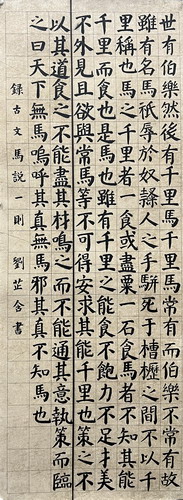 世有伯樂然後有千里馬千里馬常有而伯樂不常有故
雖有名馬祇辱於奴隸人之手駢死于槽櫪之間不以千
里稱也馬之千里者一食或盡粟一石食馬者不知其能
千里而食也是馬也雖有千里之能食不飽力不足才美
不外見且欲與常馬等不可得安求其能千里也策之不
以其道食之不能盡其材鳴之而不能通其意執策而臨
之曰天下無馬嗚呼其真無馬邪其真不知馬也
錄古文馬說一則 劉芷含書